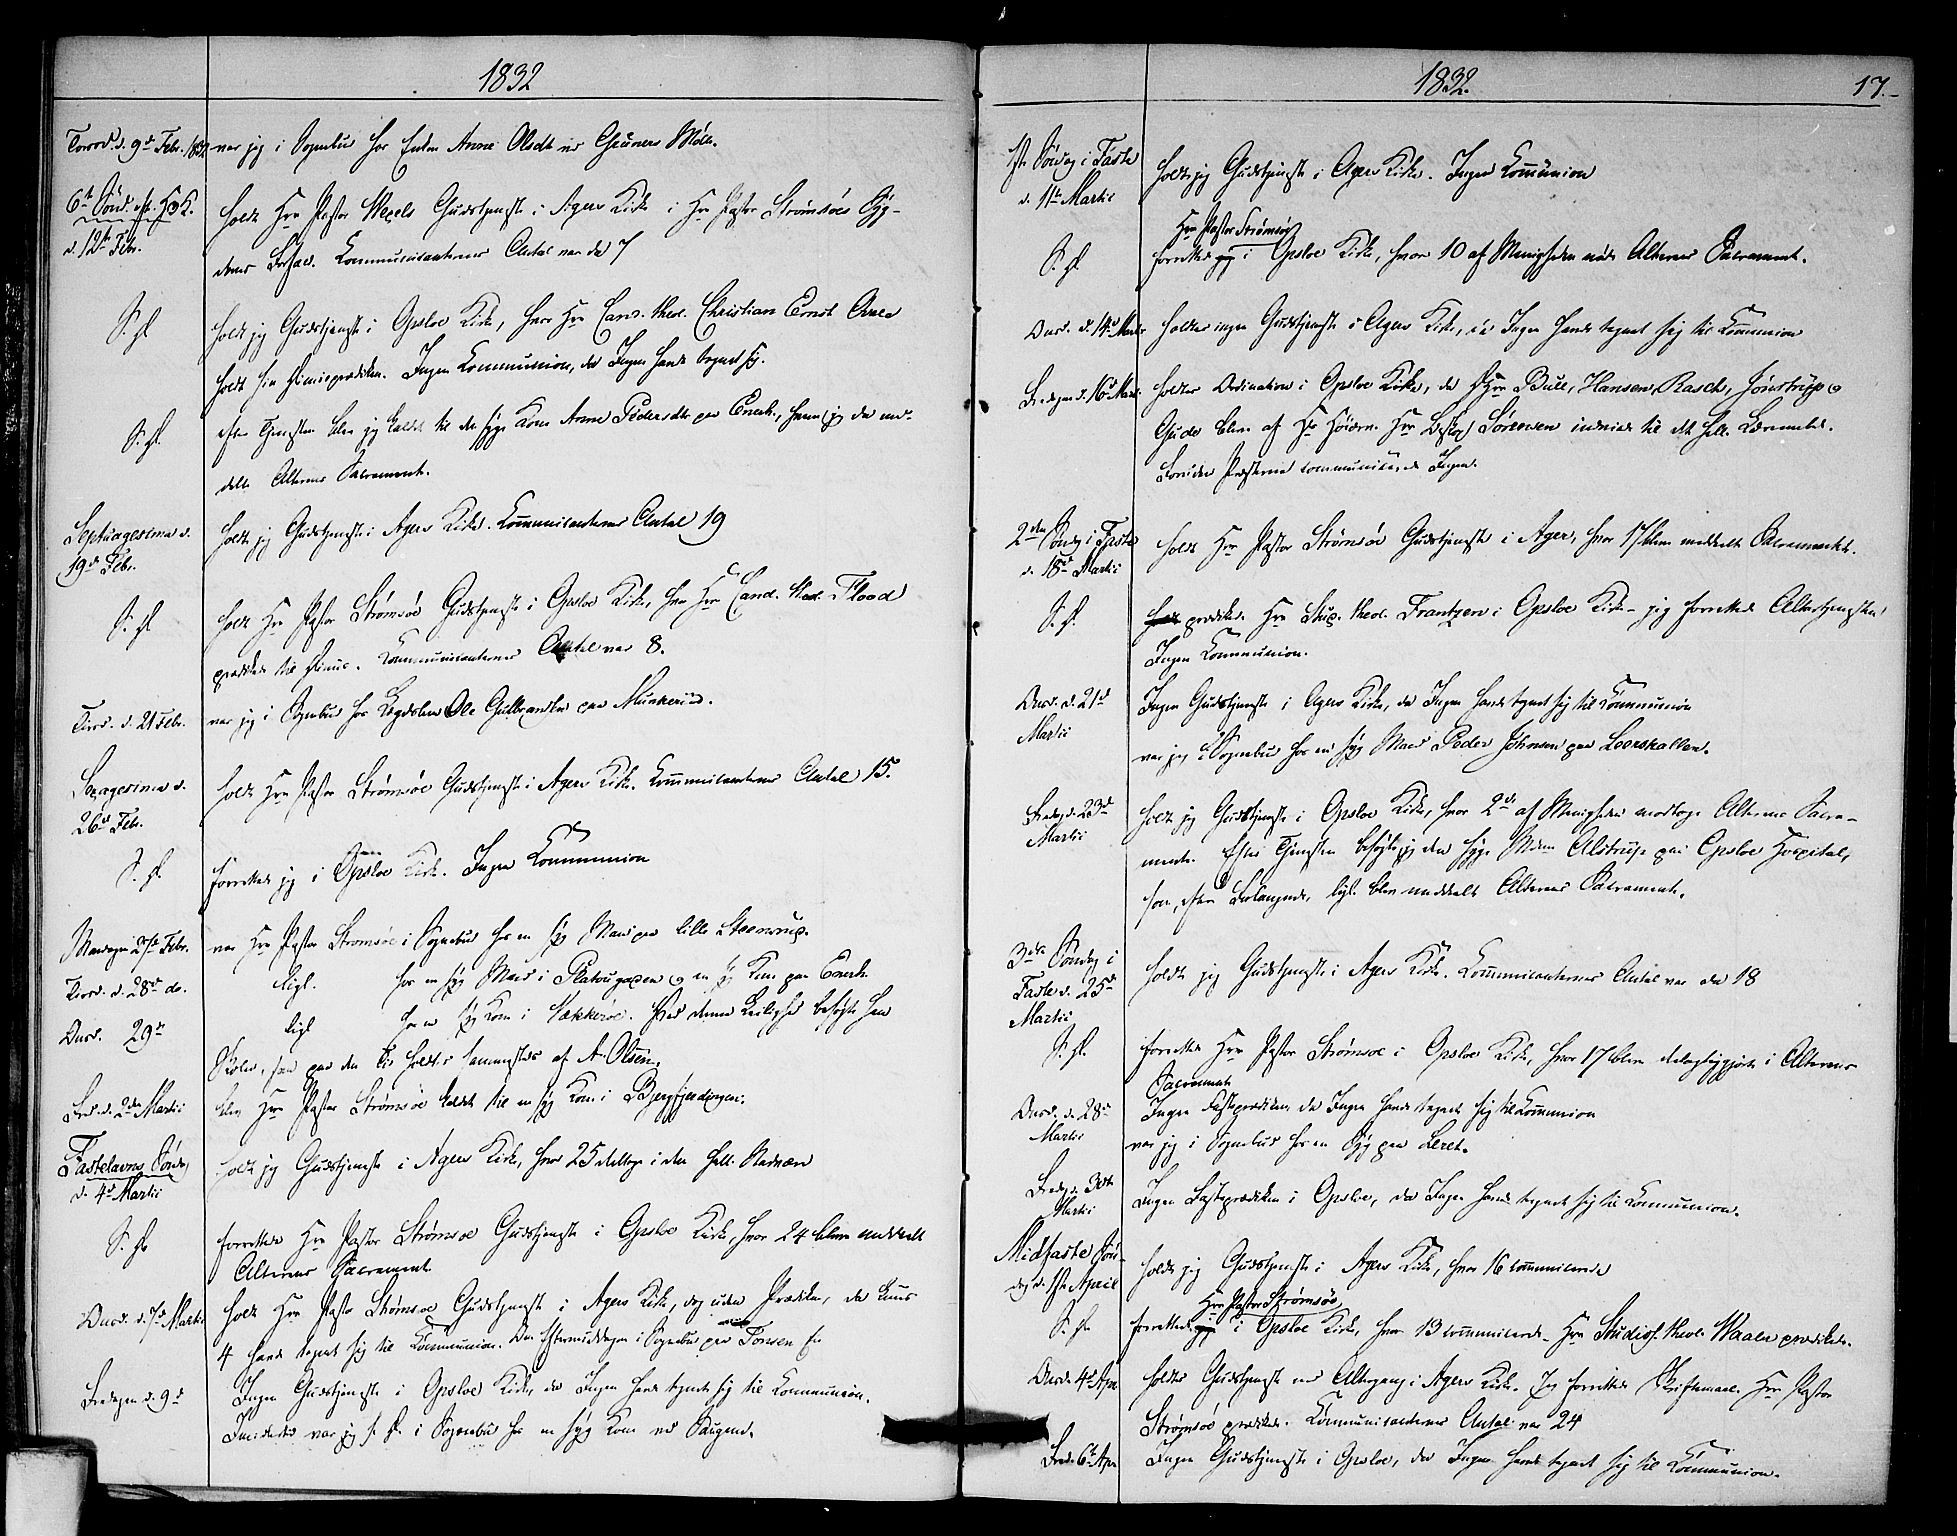 1832
Torsd. d. 9de Febr. 1832 var jeg i Sognebud hos Enken Anne Olsdt. ved Gruners Mølle.
6te Sönd. eft. H3K. holdt Hr. Pastor Wexels Gudstjeneste i Agers Kirke i Hr. Pastor Strömsöes Syg-
d. 12te Febr. doms Forfald. Kommunicanternes Antal var da 7
S. D. holdt jeg Gudstjeneste i Opsloe Kirke, hvor Hr. Cand. theol. Christian Ernst
holdt sin Dimisprædiken. Ingen Kommunion, da Ingen havde tegnet sig.
S. D. efter Tjenesten blev jeg kaldt til den syge Kone Anne Pedersdt. paa Enerh., hvem jeg da med-
delte Alterens Sacrament.
Septuagesima d. holdt jeg Gudstjeneste i Agers Kirke. Kommunicanternes Antal 19
19de Febr.
S. D. holdt Hr. Pastor Strömsöe Gudstjeneste i Opsloe Kirke, hvor Hr. Cand. theol. Flood
prædikede til Dimis. Kommunicanternes Antal var 8.
Tirsd. d. 21 Febr. var jeg i Sognebud hos Ole Gulbrandsen paa Munkerud.
Sexagesima d. holdt Hr. Pastor Strömsöe Gudstjeneste i Agers Kirke. Kommunicanternes Antal 15.
26de Febr.
S. D. forrettede jeg i Opsloe Kirke. Ingen Kommunion
Mandagen 27de Febr. var Hr. Pastor Strömsöe i Sognebud hos en syg Mand paa lille Steensrup.
Tirsd. d. 28de do. ligl. hos en syg Mand i Platougaden og en syg Kone paa Enerh.
Onsd. 29de ligl hos en syg Kone i Vækkeröe. Ved denne Leilighed besøgte han
Skolen, som paa den Tid holdtes sammesteds af A. Olsen.
Fred. d. 2den Martii blev Hr. Pastor Strömsöe kaldt til en syg Kone i Bjergfjerdingen.
Fastelavns Søndag holdt jeg Gudstjeneste i Agers Kirke, hvor 25 deltoge i den hell. Nadvere
d. 4de Martii
S. D. forrettede Hr. Pastor Strömsöe Gudstjeneste i Opsloe Kirke, hvor 24 bleve meddeelt
Alterens Sacrament.
Onsd. d. 7de Martii holdt Hr. Pastor Strömsöe Gudstjeneste i Agers Kirke, dog uden Prædiken, da kuns
4 havde tegnet sig til Kommunion. Om Eftermiddagen i Sognebud paa Tonsen
Fredagen d. 9de Ingen Gudstjeneste i Opsloe Kirke, da Ingen havde tegnet sig til Kommunion.
Imidlertid var jeg s. D. i Sognebud hos en syg Kone ved Saugene.
1832.
17.
1ste Søndag i Faste holdt jeg Gudstjeneste i Agers Kirke. Ingen Kommunion
d. 11te Martii
Hr. Pastor Strömsöe
S. D. forrettede jeg i Opsloe Kirke, hvor 10 af Menigheden nöde Alterens Sacrament.
Onsd. d. 14de Martii holdtes ingen Gudstjeneste i Agers Kirke, da Ingen havde tegnet sig til Kommunion
Fredagen d. 16de Martii holdtes Ordination i Opsloe Kirke, da DHrr. Bull, Hansen, Rasch, Jonstrup og
Gude bleve af Hs. Höiærv. Hr. Biskop Sörensen indviede til det hell. Læreembede.
Foruden Præsterne communicerede Ingen.
2den Søndag i Faste holdt Hr. Pastor Strömsöe Gudstjeneste i Ager, hvor 17 bleve meddeelte Sacramentet.
d. 18de Martii
S. D. holdt prædikede Hr. Stud. theol. Frantzen i Opsloe Kirke - jeg forrettede Altertjenesten.
Ingen Kommunion.
Onsd. d. 21de Ingen Gudstjeneste i Agers Kirke, da Ingen havde tegnet sig til Kommunion
Martii var jeg i Sognebud hos en syg Mand Peder Johnsen paa Leerskallen.
Fredag d. 23de holdt jeg Gudstjeneste i Opsloe Kirke, hvor 2de af Menigheden modtoge Alterens Sacra-
Martii mente. Efter Tjenesten besøgte jeg den syge Madm Alstrup paa Opsloe Hospital,
som, efter Forlangende, ligl. blev meddeelt Alterens Sacrament.
3die Søndag i holdt jeg Gudstjeneste i Agers Kirke. Kommunicanternes Antal var da 18
Faste d. 25de
Martii
S. D. forrettede Hr. Pastor Strömsöe i Opsloe Kirke, hvor 17 bleve delagtiggjorte i Alterens
Sacramente
Onsd. d. 28de Ingen Fasteprædiken da Ingen havde tegnet sig til Kommunion
Martii var jeg i Sognebud hos en Syg paa Leret.
Fredag d. 30te Ingen Fasteprædiken i Opsloe, da Ingen havde tegnet sig til Kommunion.
Martii
Midfaste Søn- holdt jeg Gudstjeneste i Agers Kirke, hvor 16 communicerede
dag d. 1ste April
Hr. Pastor Strömsöe
S. D. forrettede jeg i Opsloe Kirke, hvor 13 communicerede. Hr. Studios. theol. Waaler prædikede.
Onsd. 4de Apr. holdtes Gudstjeneste med Altergang i Agers Kirke. Jeg forrettede Skriftemaal. Hr. Pastor
Strömsöe prædikede. Kommunicanternes Antal var 24
Fred. 6te Apr. Ingen Gudstjeneste i Opsloe, da Ingen havde tegnet sig til Kommunion.